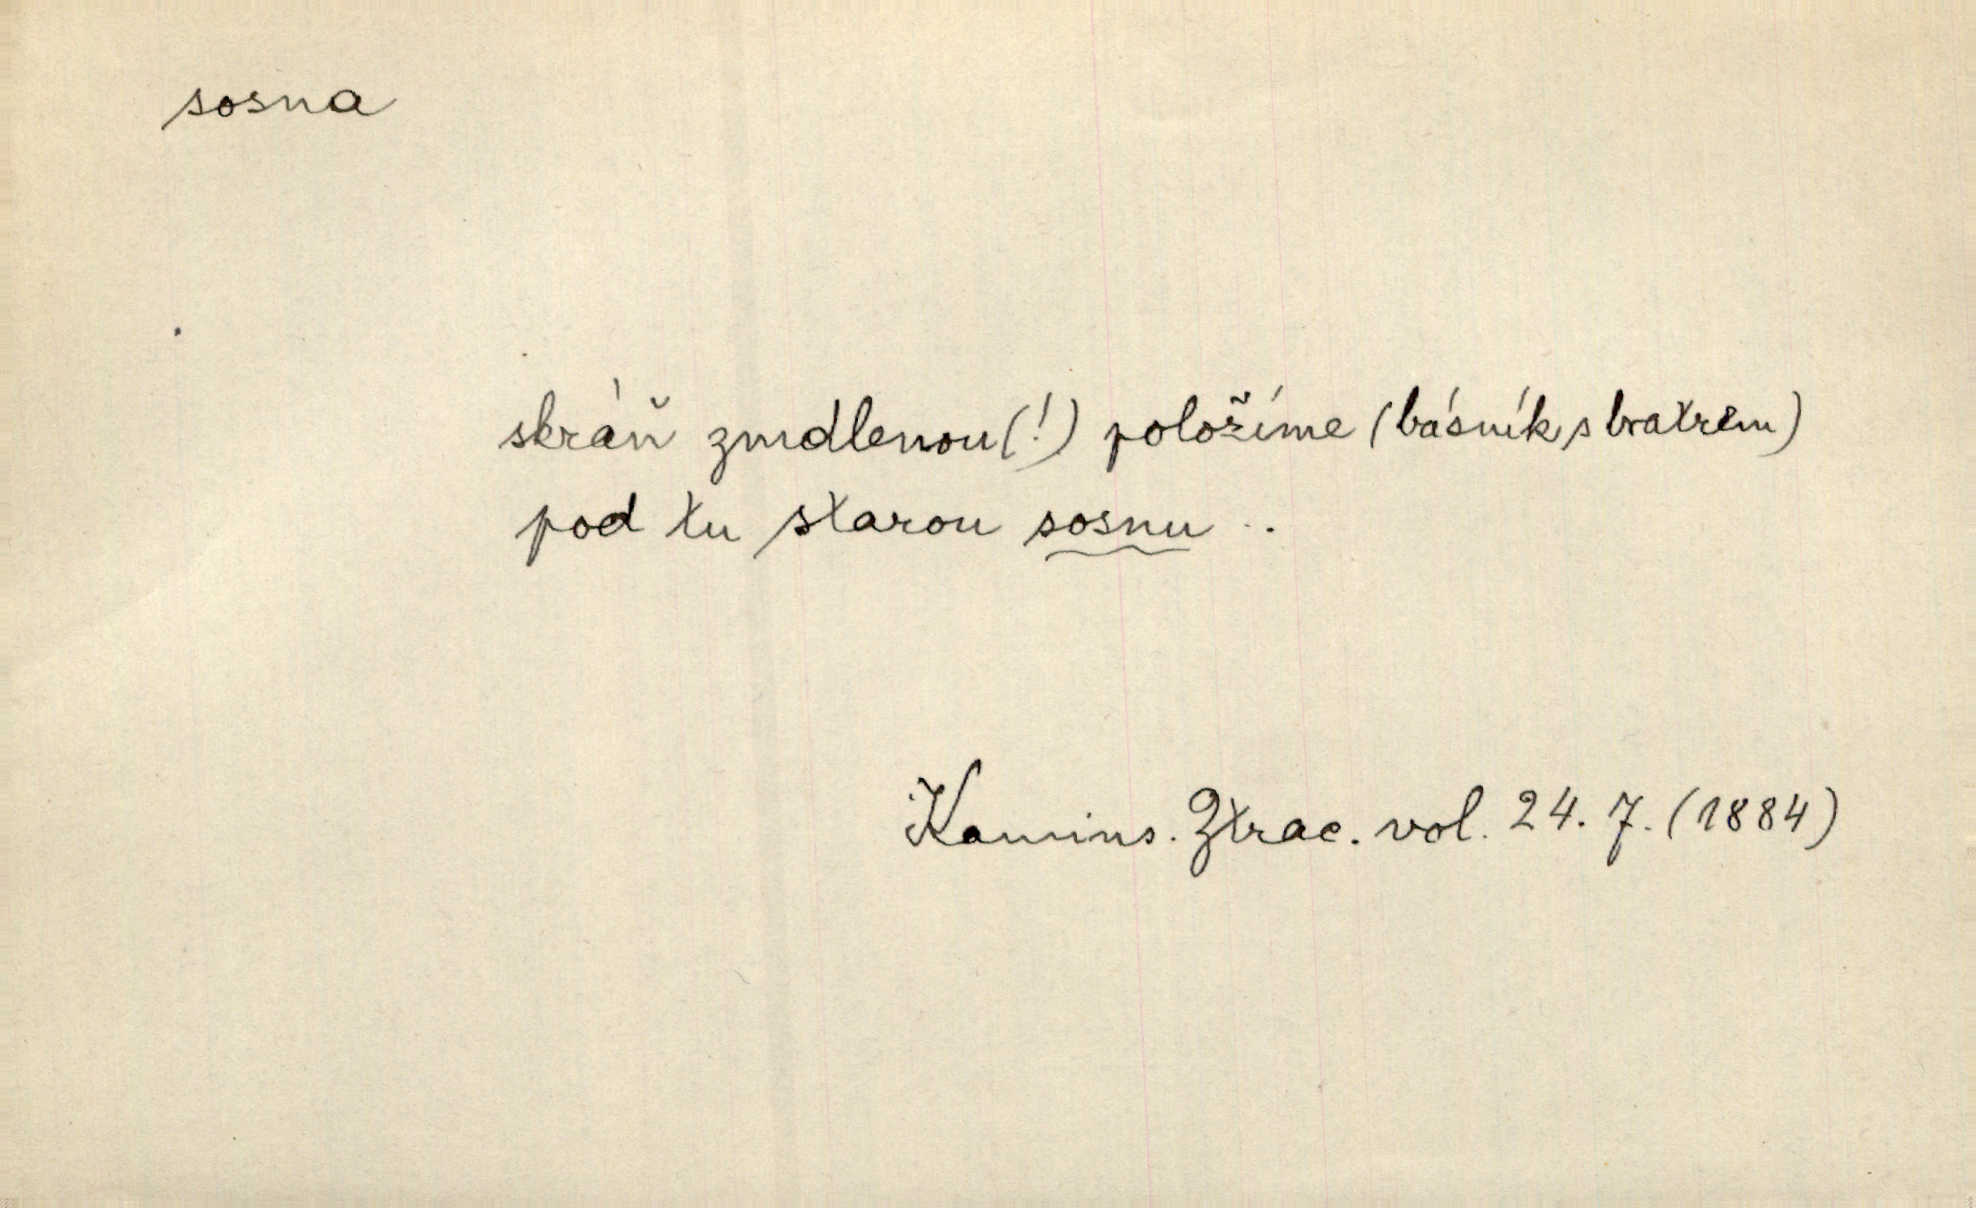 sosna
skráň zmdlenou (!) položíme (básník s bratrem)
pod tu starou sosnu ..
Kamins. Ztrac. vol. 24. 7. (1884)